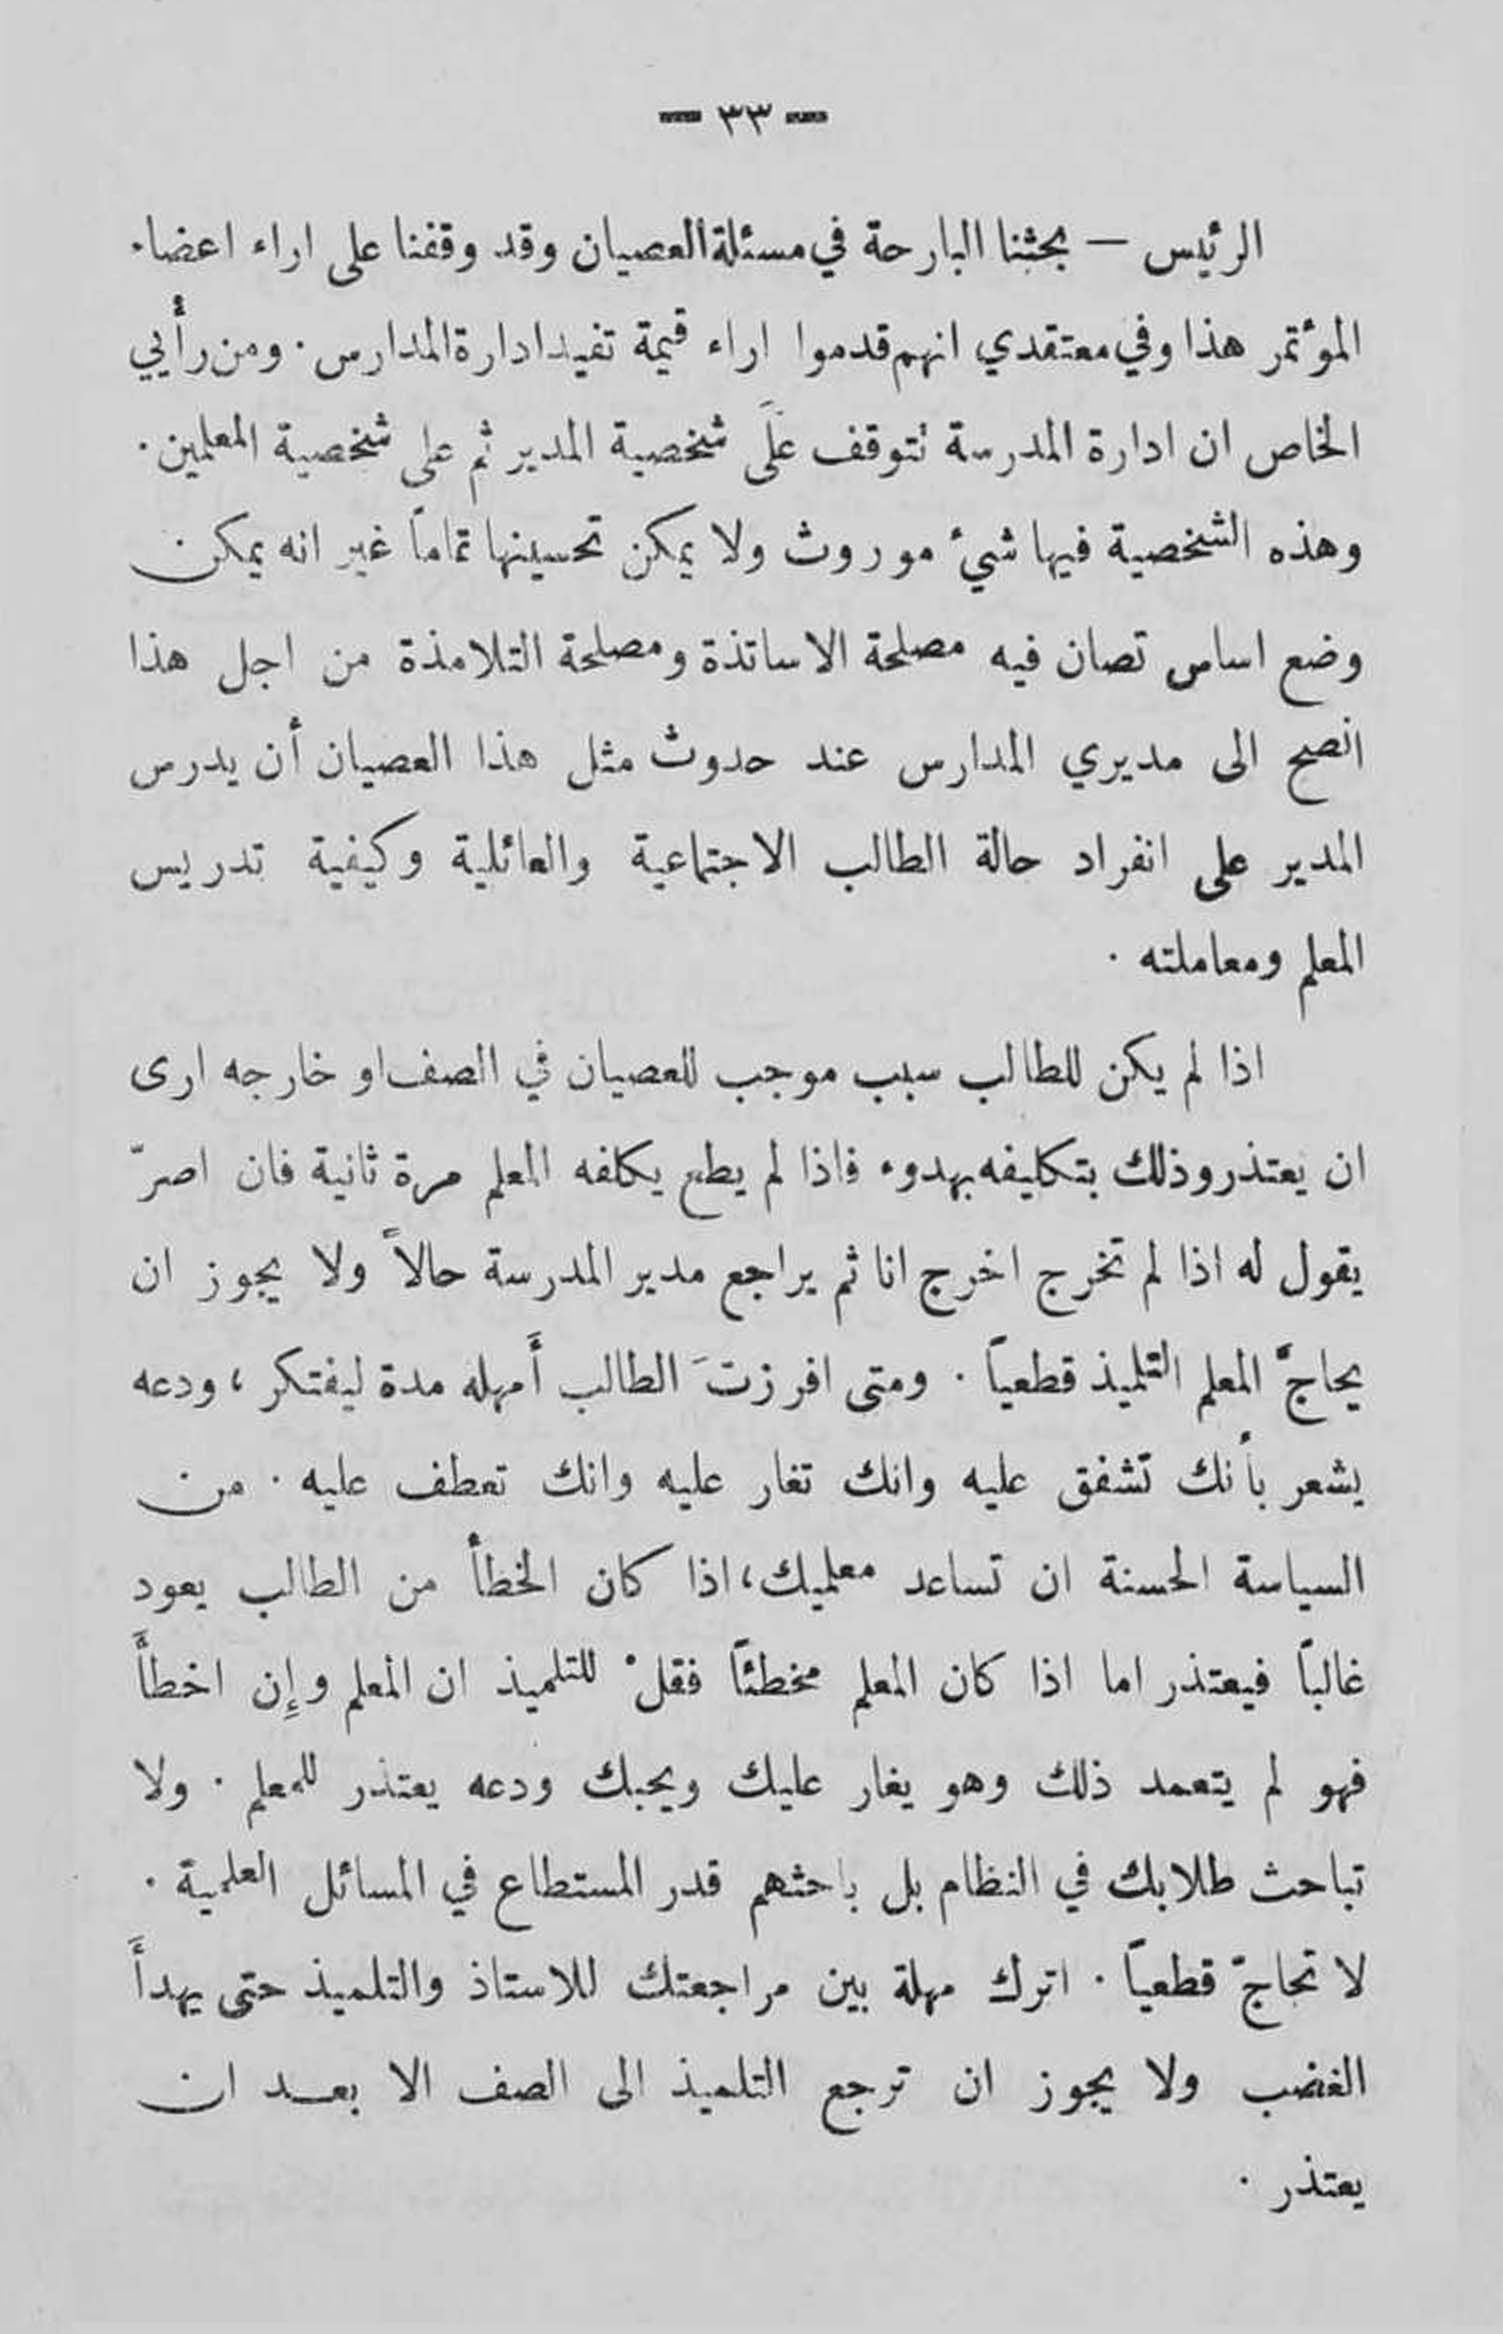 — ٣٣ —
الرئيس — بحثنا البارحة في مسئلة العصيان وقد وقفنا على اراء اعضاء
المؤتمر هذا وفي معتقدي انهم قدموا اراء قيمة تفيد ادارة المدارس . ومن رأيي
الخاص ان ادارة المدرسة تتوقف عَلَى شخصية المدير ثم على شخصية المعلمين .
وهذه الشخصية فيها شيءٌ موروث ولا يمكن تحسينها تماماً غير انه يمكن
وضع اساس تصان فيه مصلحة الاساتذة ومصلحة التلامذة من اجل هذا
انصح الى مديري المدارس عند حدوث مثل هذا العصيان أن يدرس
المدير على انفراد حالة الطالب الاجتماعية والعائلية وكيفية تدريس
المعلم ومعاملته .
اذا لم يكن للطالب سبب موجب للعصيان في الصف او خارجه ارى
ان يعتذر وذلك بتكليفه بهدوء فاذا لم يطع يكلفه المعلم مرة ثانية فان اصرّ
يقول له اذا لم تخرج اخرج انا ثم يراجع مدير المدرسة حالاً ولا يجوز ان
يحاجَّ المعلم التلميذ قطعياً . ومتى افرزتَ الطالب أَمهله مدة ليفتكر ، ودعه
يشعر بأنك تشفق عليه وانك تغار عليه وانك تعطف عليه . من
السياسة الحسنة ان تساعد معلميك ، اذا كان الخطأ من الطالب يعود
غالباً فيعتذر اما اذا كان المعلم مخطئاً فقلْ للتلميذ ان المعلم وإِن اخطأَ
فهو لم يتعمد ذلك وهو يغار عليك ويحبك ودعه يعتذر للمعلم . ولا
تباحث طلابك في النظام بل باحثهم قدر المستطاع في المسائل العلمية .
لا تحاجّ قطعياً . اترك مهلة بين مراجعتك للاستاذ والتلميذ حتى يهدأَ
الغضب ولا يجوز ان ترجع التلميذ الى الصف الا بعد ان
يعتذر .